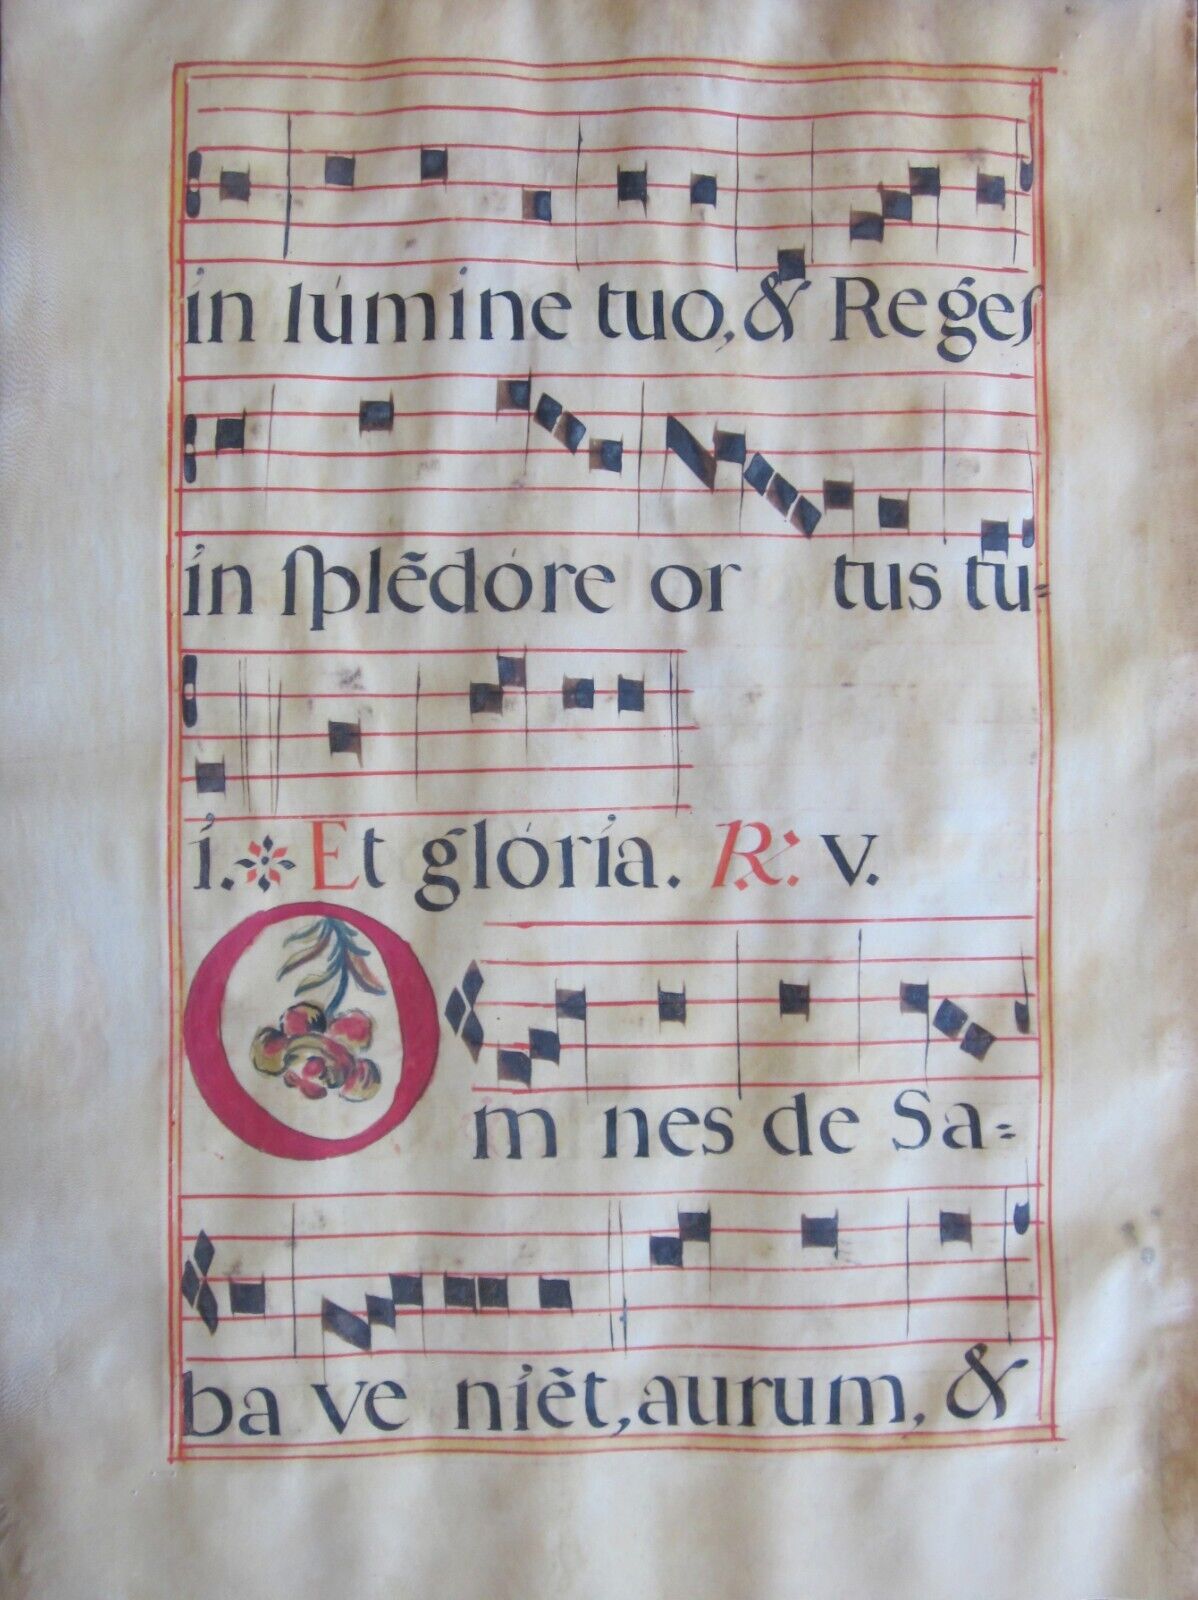 in lúmine tuo, & Regeſ
in ſplẽdóre or tus tu=
i. Et glória. ℟. v.
Om nes de Sa=
ba ve niẽt, aurum, &